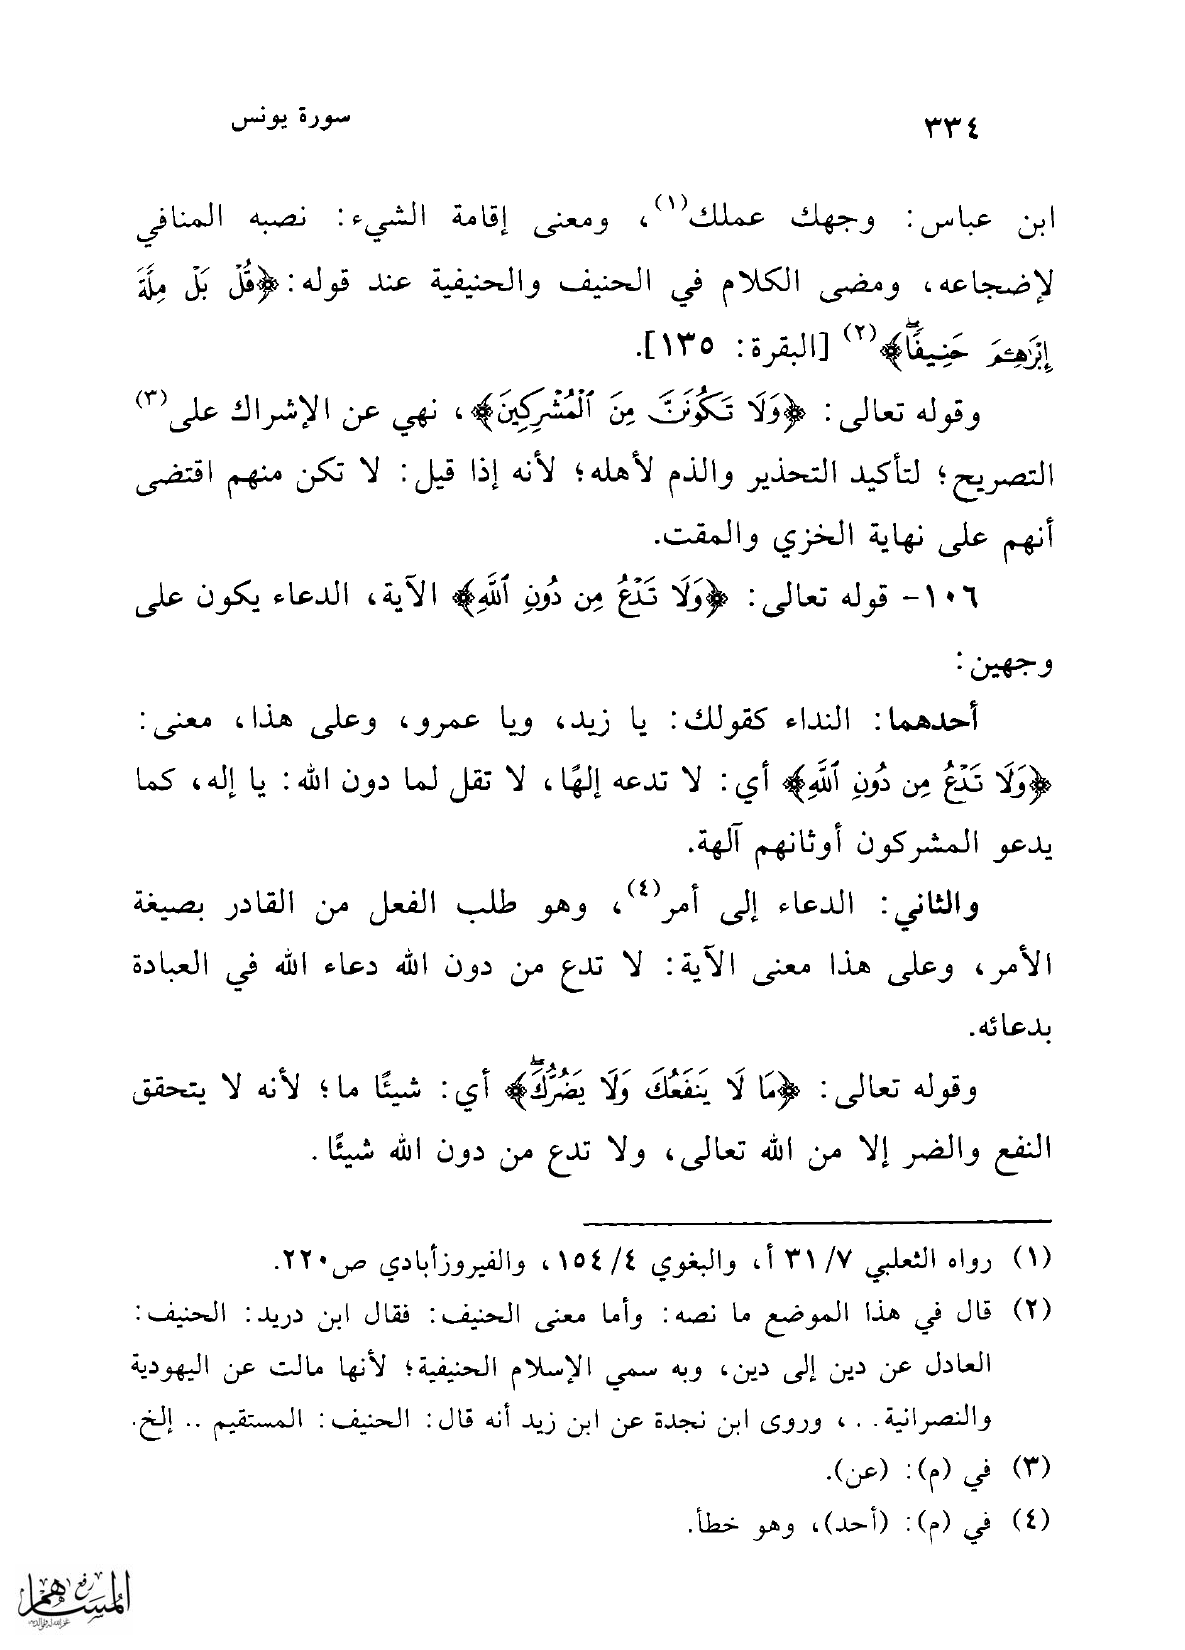 ٣٣٤
سورة يونس
ابن عباس: وجهك عملك(١)، ومعنى إقامة الشيء: نصبه المنافي
لإضجاعه، ومضى الكلام في الحنيف والحنيفية عند قوله: ﴿قُلْ بَلْ مِلَّةَ
إِبْرَاهِيمَ حَنِيفًا﴾(٢) [البقرة: ١٣٥].
وقوله تعالى: ﴿وَلَا تَكُونَنَّ مِنَ ٱلْمُشْرِكِينَ﴾، نهي عن الإشراك على(٣)
التصريح؛ لتأكيد التحذير والذم لأهله؛ لأنه إذا قيل: لا تكن منهم اقتضى
أنهم على نهاية الخزي والمقت.
١٠٦- قوله تعالى: ﴿وَلَا تَدْعُ مِن دُونِ ٱللَّهِ﴾ الآية، الدعاء يكون على
وجهين:
أحدهما: النداء كقولك: يا زيد، ويا عمرو، وعلى هذا، معنى:
﴿وَلَا تَدْعُ مِن دُونِ ٱللَّهِ﴾ أي: لا تدعه إلهًا، لا تقل لما دون الله: يا إله، كما
يدعو المشركون أوثانهم آلهة.
والثاني: الدعاء إلى أمر(٤)، وهو طلب الفعل من القادر بصيغة
الأمر، وعلى هذا معنى الآية: لا تدع من دون الله دعاء الله في العبادة
بدعائه.
وقوله تعالى: ﴿مَا لَا يَنفَعُكَ وَلَا يَضُرُّكَۖ﴾ أي: شيئًا ما؛ لأنه لا يتحقق
النفع والضر إلا من الله تعالى، ولا تدع من دون الله شيئًا.
(١) رواه الثعلبي ٧/ ٣١ أ، والبغوي ٤/ ١٥٤، والفيروزأبادي ص٢٢٠.
(٢) قال في هذا الموضع ما نصه: وأما معنى الحنيف: فقال ابن دريد: الحنيف:
العادل عن دين إلى دين، وبه سمي الإسلام الحنيفية؛ لأنها مالت عن اليهودية
والنصرانية...، وروى ابن نجدة عن ابن زيد أنه قال: الحنيف: المستقيم .. إلخ.
(٣) في (م): (عن).
(٤) في (م): (أحد)، وهو خطأ.